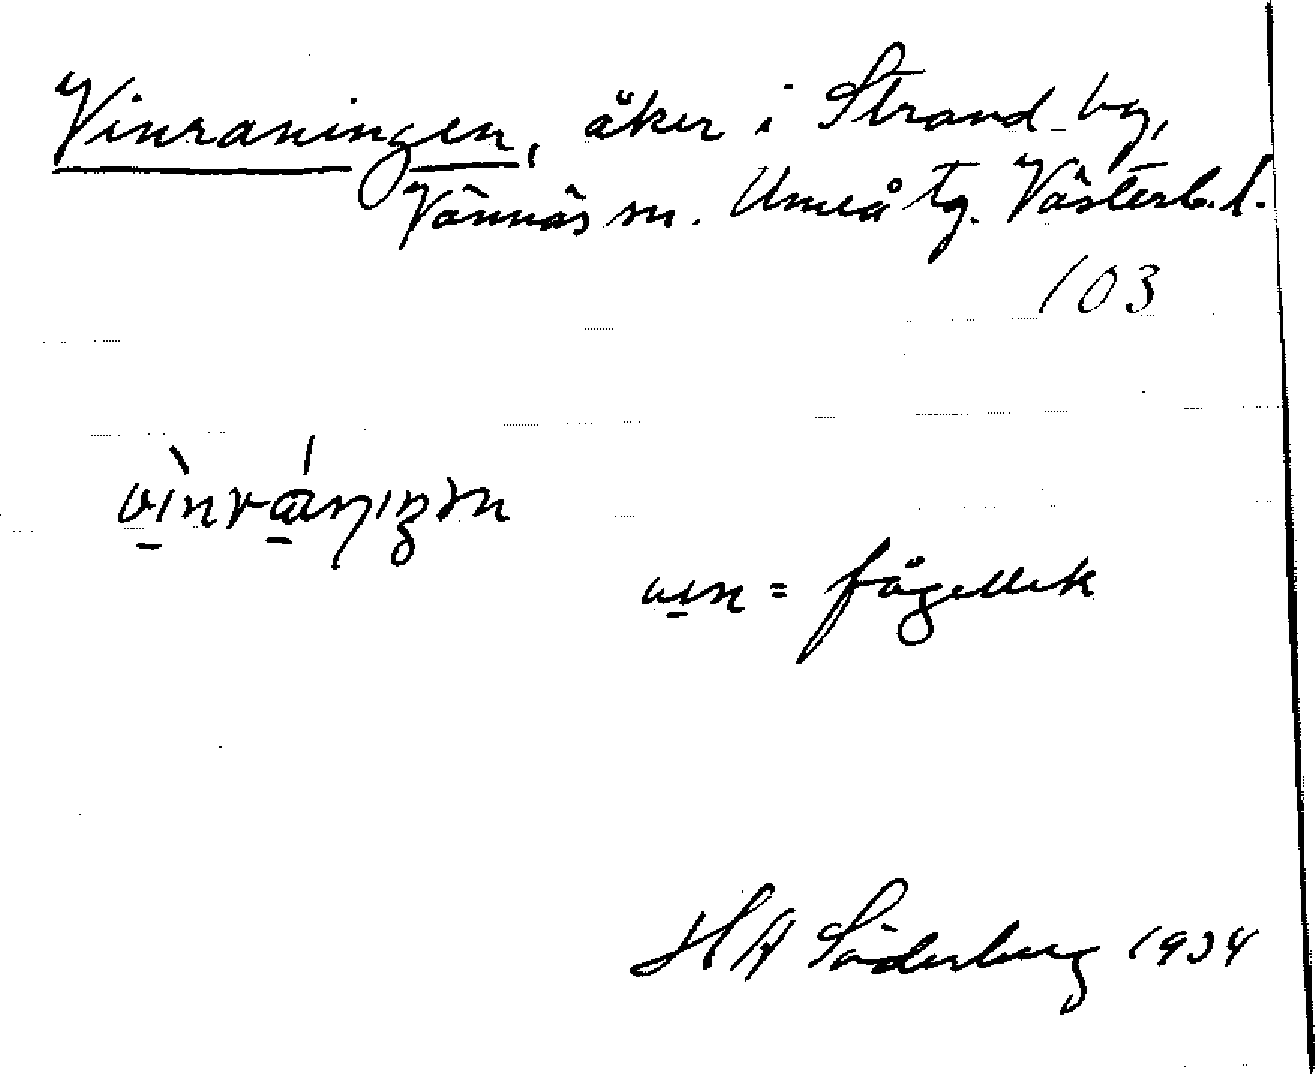 Vinraningen, åker i Strand by,
Vännäs sn. Umeå tg. Västerb. l.
103
vin = fågellek
H A Söderberg 1934